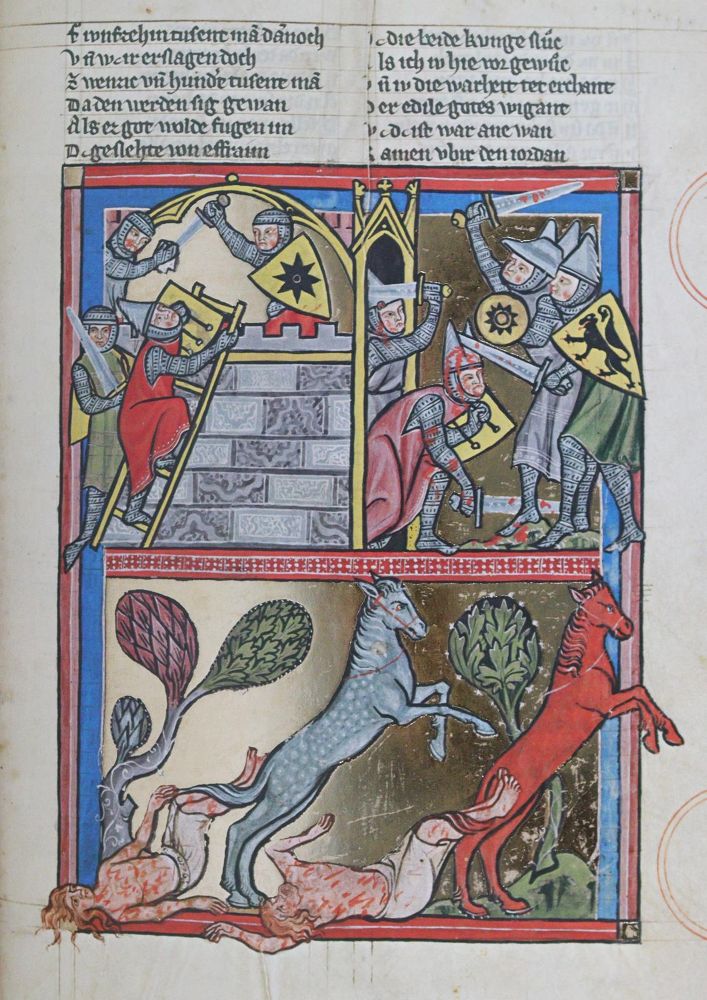 Funfzehin tusent mā dānoch
vñ war erslagen doch
Zwenzic vñ hund't tusent mā
Da den werden sig gewan
Als er got wolde fugen im
Dc geslehte von effraim
dc die beide kunge sluc
Als ich iv hie vor gewuc
vñ iv die warheit tet erchant
Der edile gotes wigant
dc ist war ane wan
kamen vbir den iordan